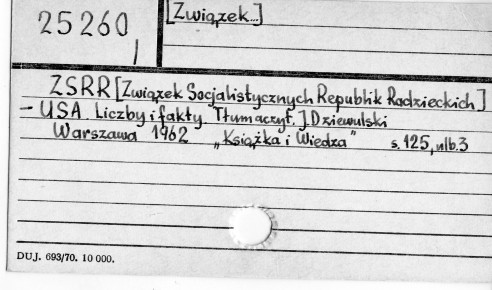 25260
[Związek...]
ZSRR [Związek Socjalistycznych Republik Radzieckich]
- USA. Liczby i fakty. Tłumaczył. J Dziewulski
Warszawa 1962 „Książka i Wiedza" s. 125, nlb. 3
DUJ. 693/70. 10 000.